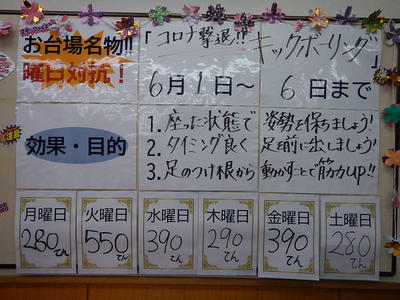 お台場名物!!
曜日対抗!
「コロナ撃退!!
キックボーリング」
6月1日~
6日まで
効果・目的
1. 座った状態で 姿勢を保ちましょう!
2. タイミング良く 足を前に出しましょう!
3. 足のつけ根から 動かすことで筋力up!!
月曜日 火曜日 水曜日 木曜日 金曜日 土曜日
280てん 550てん 390てん 290てん 390てん 280てん
注目